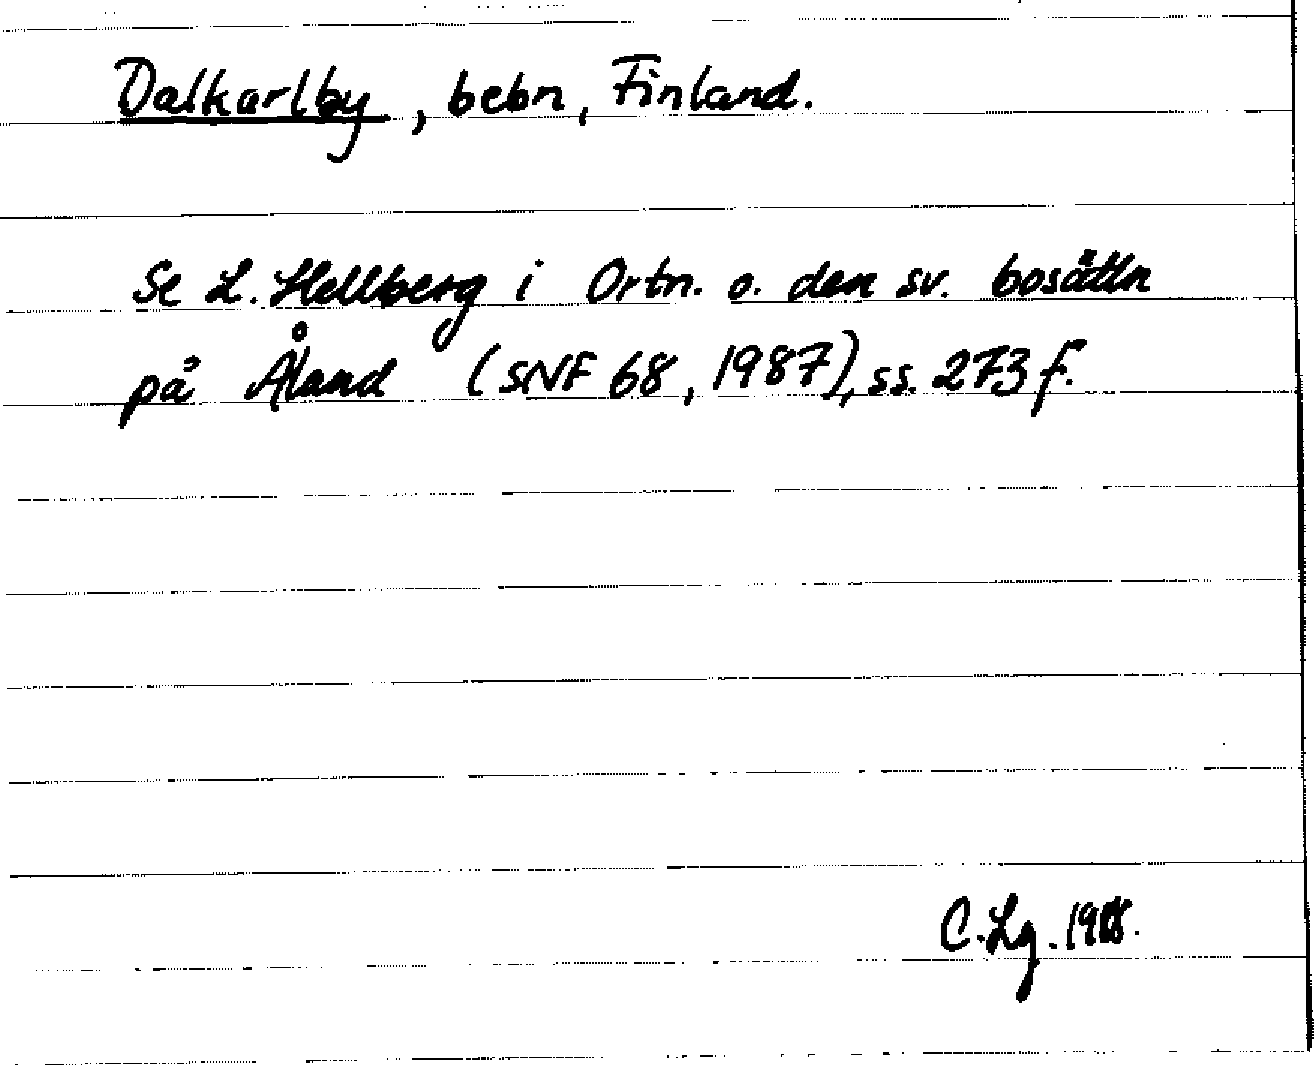 Dalkarlby, bebn, Finland.
Se L. Hellberg i Ortn. o. den sv. bosättn
på Åland (SNF 68, 1987), ss. 273 f.
C. Lg. 1988.